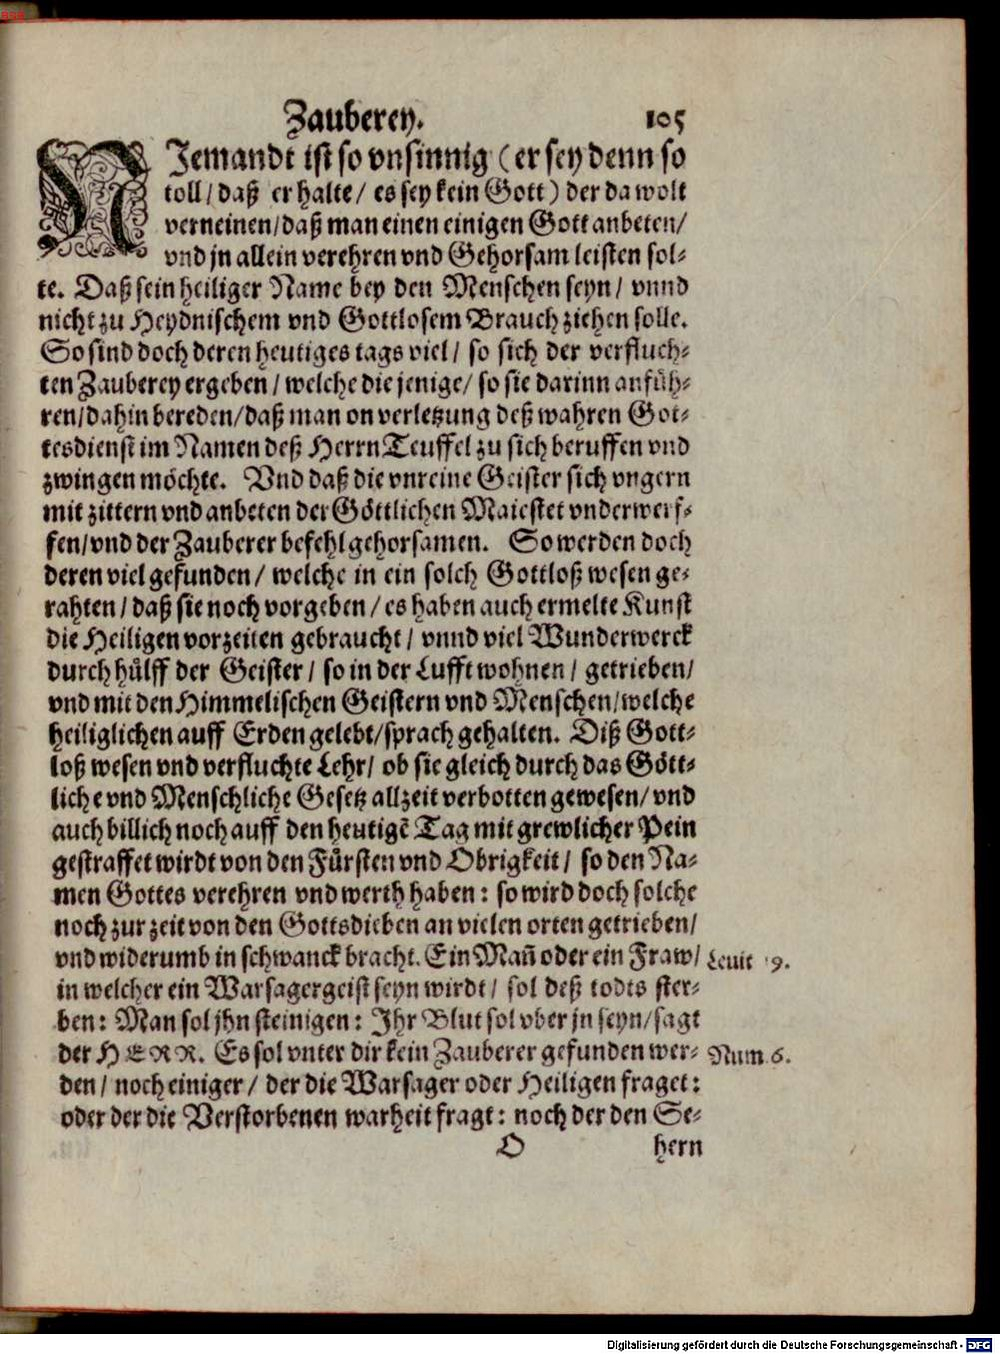 Zauberey. 105
NJemandt ist so vnsinnig (er sey denn so
toll/ daß er halte/ es sey kein Gott) der da wolt
verneinen/ daß man einen einigen Gott anbeten/
vnd jn allein verehren vnd Gehorsam leisten sol⸗
te. Daß sein heiliger Name bey den Menschen seyn/ vnnd
nicht zu Heydnischem vnd Gottlosem Brauch ziehen solle.
So sind doch deren heutiges tags viel/ so sich der verfluch⸗
ten Zauberey ergeben/ welche die jenige/ so sie darinn anfüh⸗
ren/ dahin bereden/ daß man on verletzung deß wahren Got⸗
tesdienst im Namen deß Herrn Teuffel zu sich beruffen vnd
zwingen möchte. Vnd daß die vnreine Geister sich vngern
mit zittern vnd anbeten der Göttlichen Maiestet vnderwerf⸗
fen/ vnd der Zauberer befehl gehorsamen. So werden doch
deren viel gefunden/ welche in ein solch Gottloß wesen ge⸗
rahten/ daß sie noch vorgeben/ es haben auch ermelte Kunst
die Heiligen vorzeiten gebraucht/ vnnd viel Wunderwerck
durch hülff der Geister/ so in der Lufft wohnen/ getrieben/
vnd mit den Himmelischen Geistern vnd Menschen/ welche
heiliglichen auff Erden gelebt/ sprach gehalten. Diß Gott⸗
loß wesen vnd verfluchte Lehr/ ob sie gleich durch das Gött⸗
liche vnd Menschliche Gesetz allzeit verbotten gewesen/ vnd
auch billich noch auff den heutigē Tag mit grewlicher Pein
gestraffet wirdt von den Fürsten vnd Obrigkeit/ so den Na⸗
men Gottes verehren vnd werth haben: so wird doch solche
noch zur zeit von den Gottsdieben an vielen orten getrieben/
vnd widerumb in schwanck bracht. Ein Mañ oder ein Fraw/ Leuit 9.
in welcher ein Warsagergeist seyn wirdt/ sol deß todts ster⸗
ben: Man sol jhn steinigen: Ihr Blut sol vber jn seyn/ sagt
der HERR. Es sol vnter dir kein Zauberer gefunden wer⸗ Num 6.
den/ noch einiger/ der die Warsager oder Heiligen fraget:
oder der die Verstorbenen warheit fragt: noch der den Se⸗
O hern
Digitalisierung gefördert durch die Deutsche Forschungsgemeinschaft - DFG